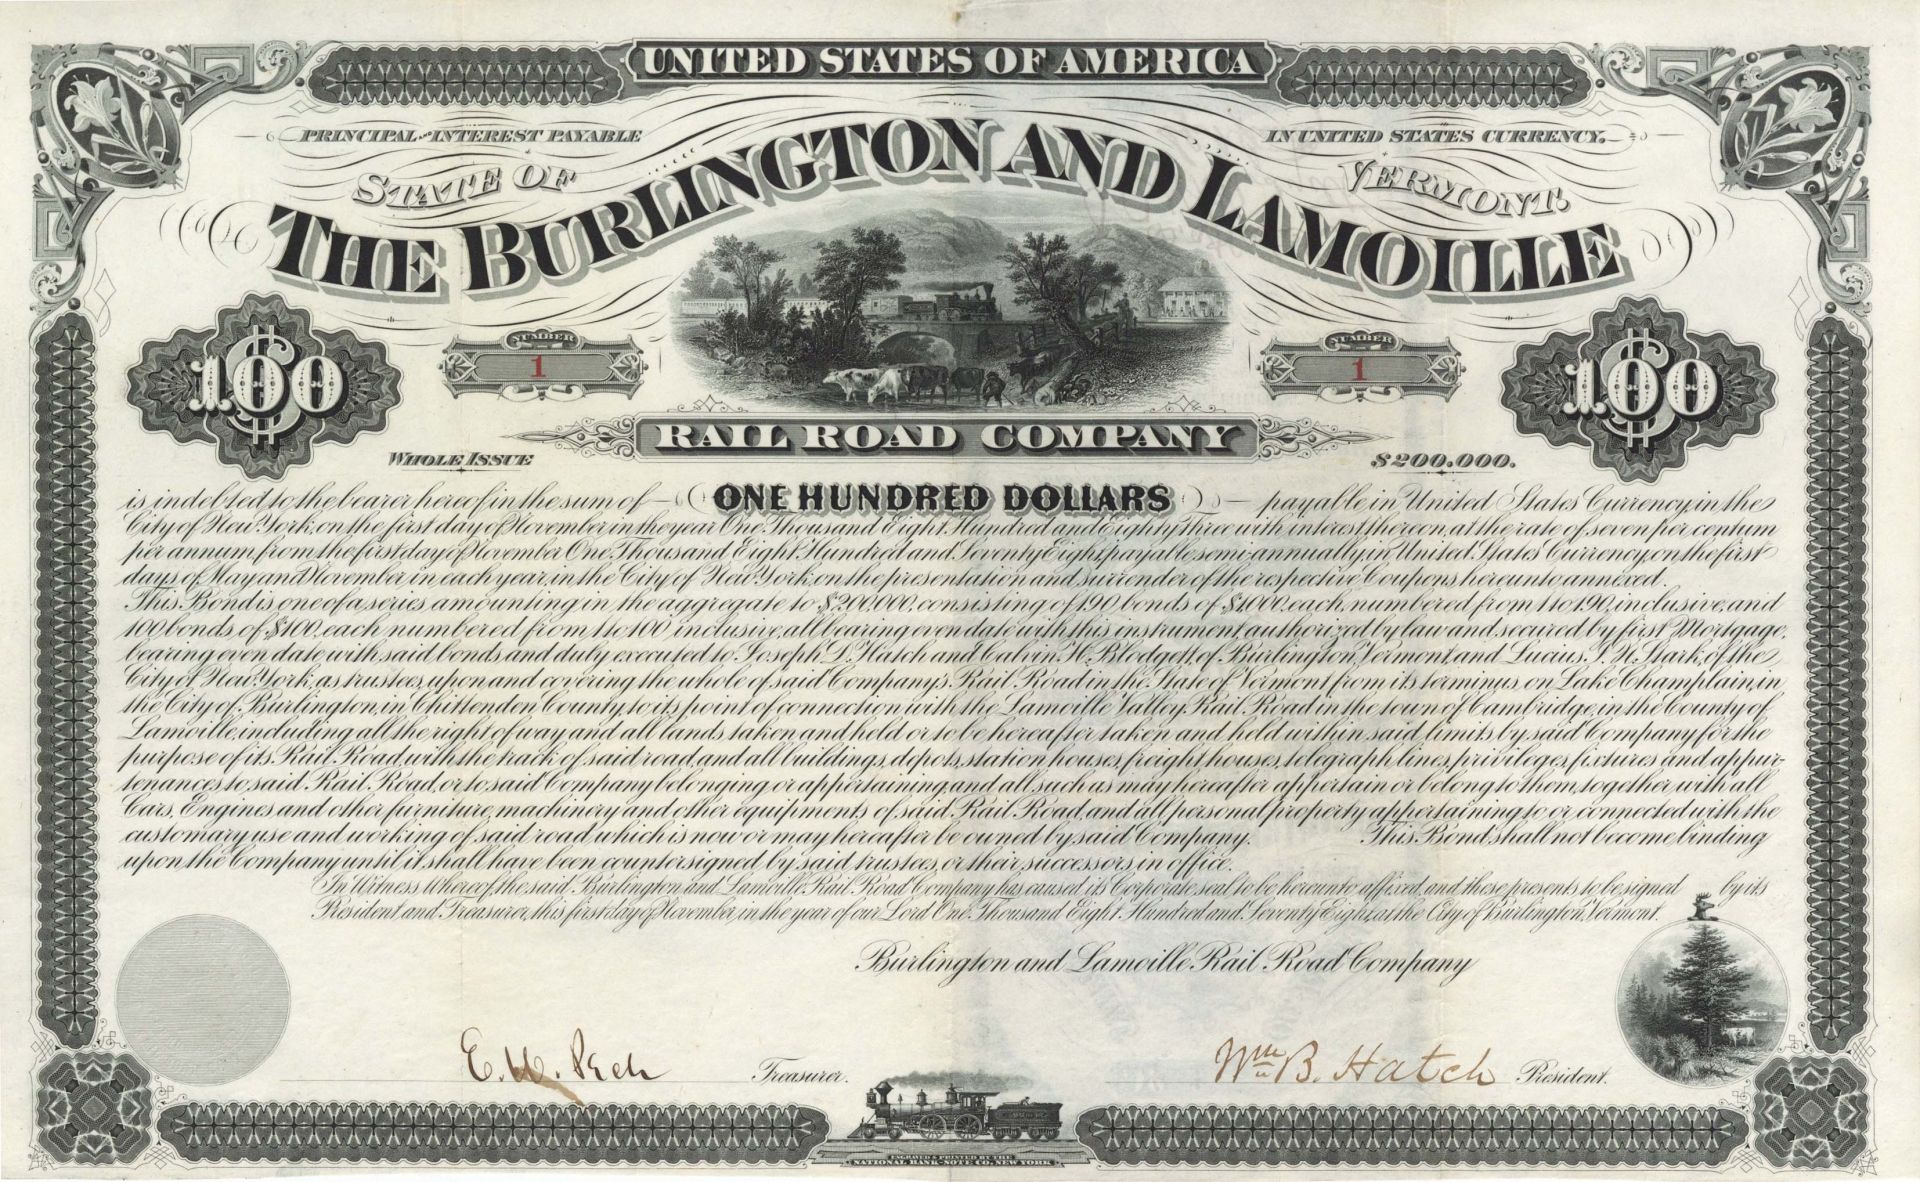 UNITED STATES OF AMERICA
PRINCIPAL AND INTEREST PAYABLE
IN UNITED STATES CURRENCY.
STATE OF
VERMONT.
THE BURLINGTON AND LAMOILLE
NUMBER
1
NUMBER
1
$100
$100
RAIL ROAD COMPANY
WHOLE ISSUE
$200.000.
is indebted to the bearer hereof in the sum of ONE HUNDRED DOLLARS payable in United States Currency, in the
City of New York, on the first day of November in the year One Thousand Eight Hundred and Eighty three with interest thereon, at the rate of seven per centum
per annum from the first day of November One Thousand Eight Hundred and Seventy Eight, payable semi-annually, in United States Currency, on the first
days of May and November in each year, in the City of New York, on the presentation and surrender of the respective Coupons hereunto annexed.
This Bond is one of a series amounting in the aggregate to $200,000, consisting of 190 bonds of $1000 each, numbered from 1 to 190, inclusive, and
100 bonds of $100, each numbered from 1 to 100 inclusive, all bearing even date with this instrument, authorized by law and secured by first Mortgage,
bearing even date with said bonds and duly executed to Joseph D. Hatch and Calvin H. Blodgett, of Burlington, Vermont, and Lucius S. N. Stark, of the
City of New York, as trustees, upon and covering the whole of said Company's Rail Road in the State of Vermont from its terminus on Lake Champlain, in
the City of Burlington, in Chittenden County, to its point of connection with the Lamoille Valley Rail Road in the town of Cambridge, in the County of
Lamoille, including all the right of way and all lands taken and held or to be hereafter taken and held within said limits by said Company for the
purpose of its Rail Road, with the track of said road, and all buildings, depots, station houses, freight houses, telegraph lines, privileges, fixtures and appur-
tenances to said Rail Road, or to said Company belonging or appertaining, and all such as may hereafter appertain or belong to them, together with all
Cars, Engines and other furniture, machinery and other equipments of said Rail Road, and all personal property appertaining to or connected with the
customary use and working of said road which is now or may hereafter be owned by said Company. This Bond shall not become binding
upon the Company until it shall have been countersigned by said trustees, or their successors in office.
In Witness Whereof, the said Burlington and Lamoille Rail Road Company has caused its Corporate seal to be hereunto affixed, and these presents to be signed by its
President and Treasurer, this first day of November, in the year of our Lord One Thousand Eight Hundred and Seventy Eight, at the City of Burlington, Vermont.
Burlington and Lamoille Rail Road Company
E. W. Peck Treasurer.
Wm B. Hatch President.
ENGRAVED & PRINTED BY THE
NATIONAL BANK-NOTE CO. NEW YORK